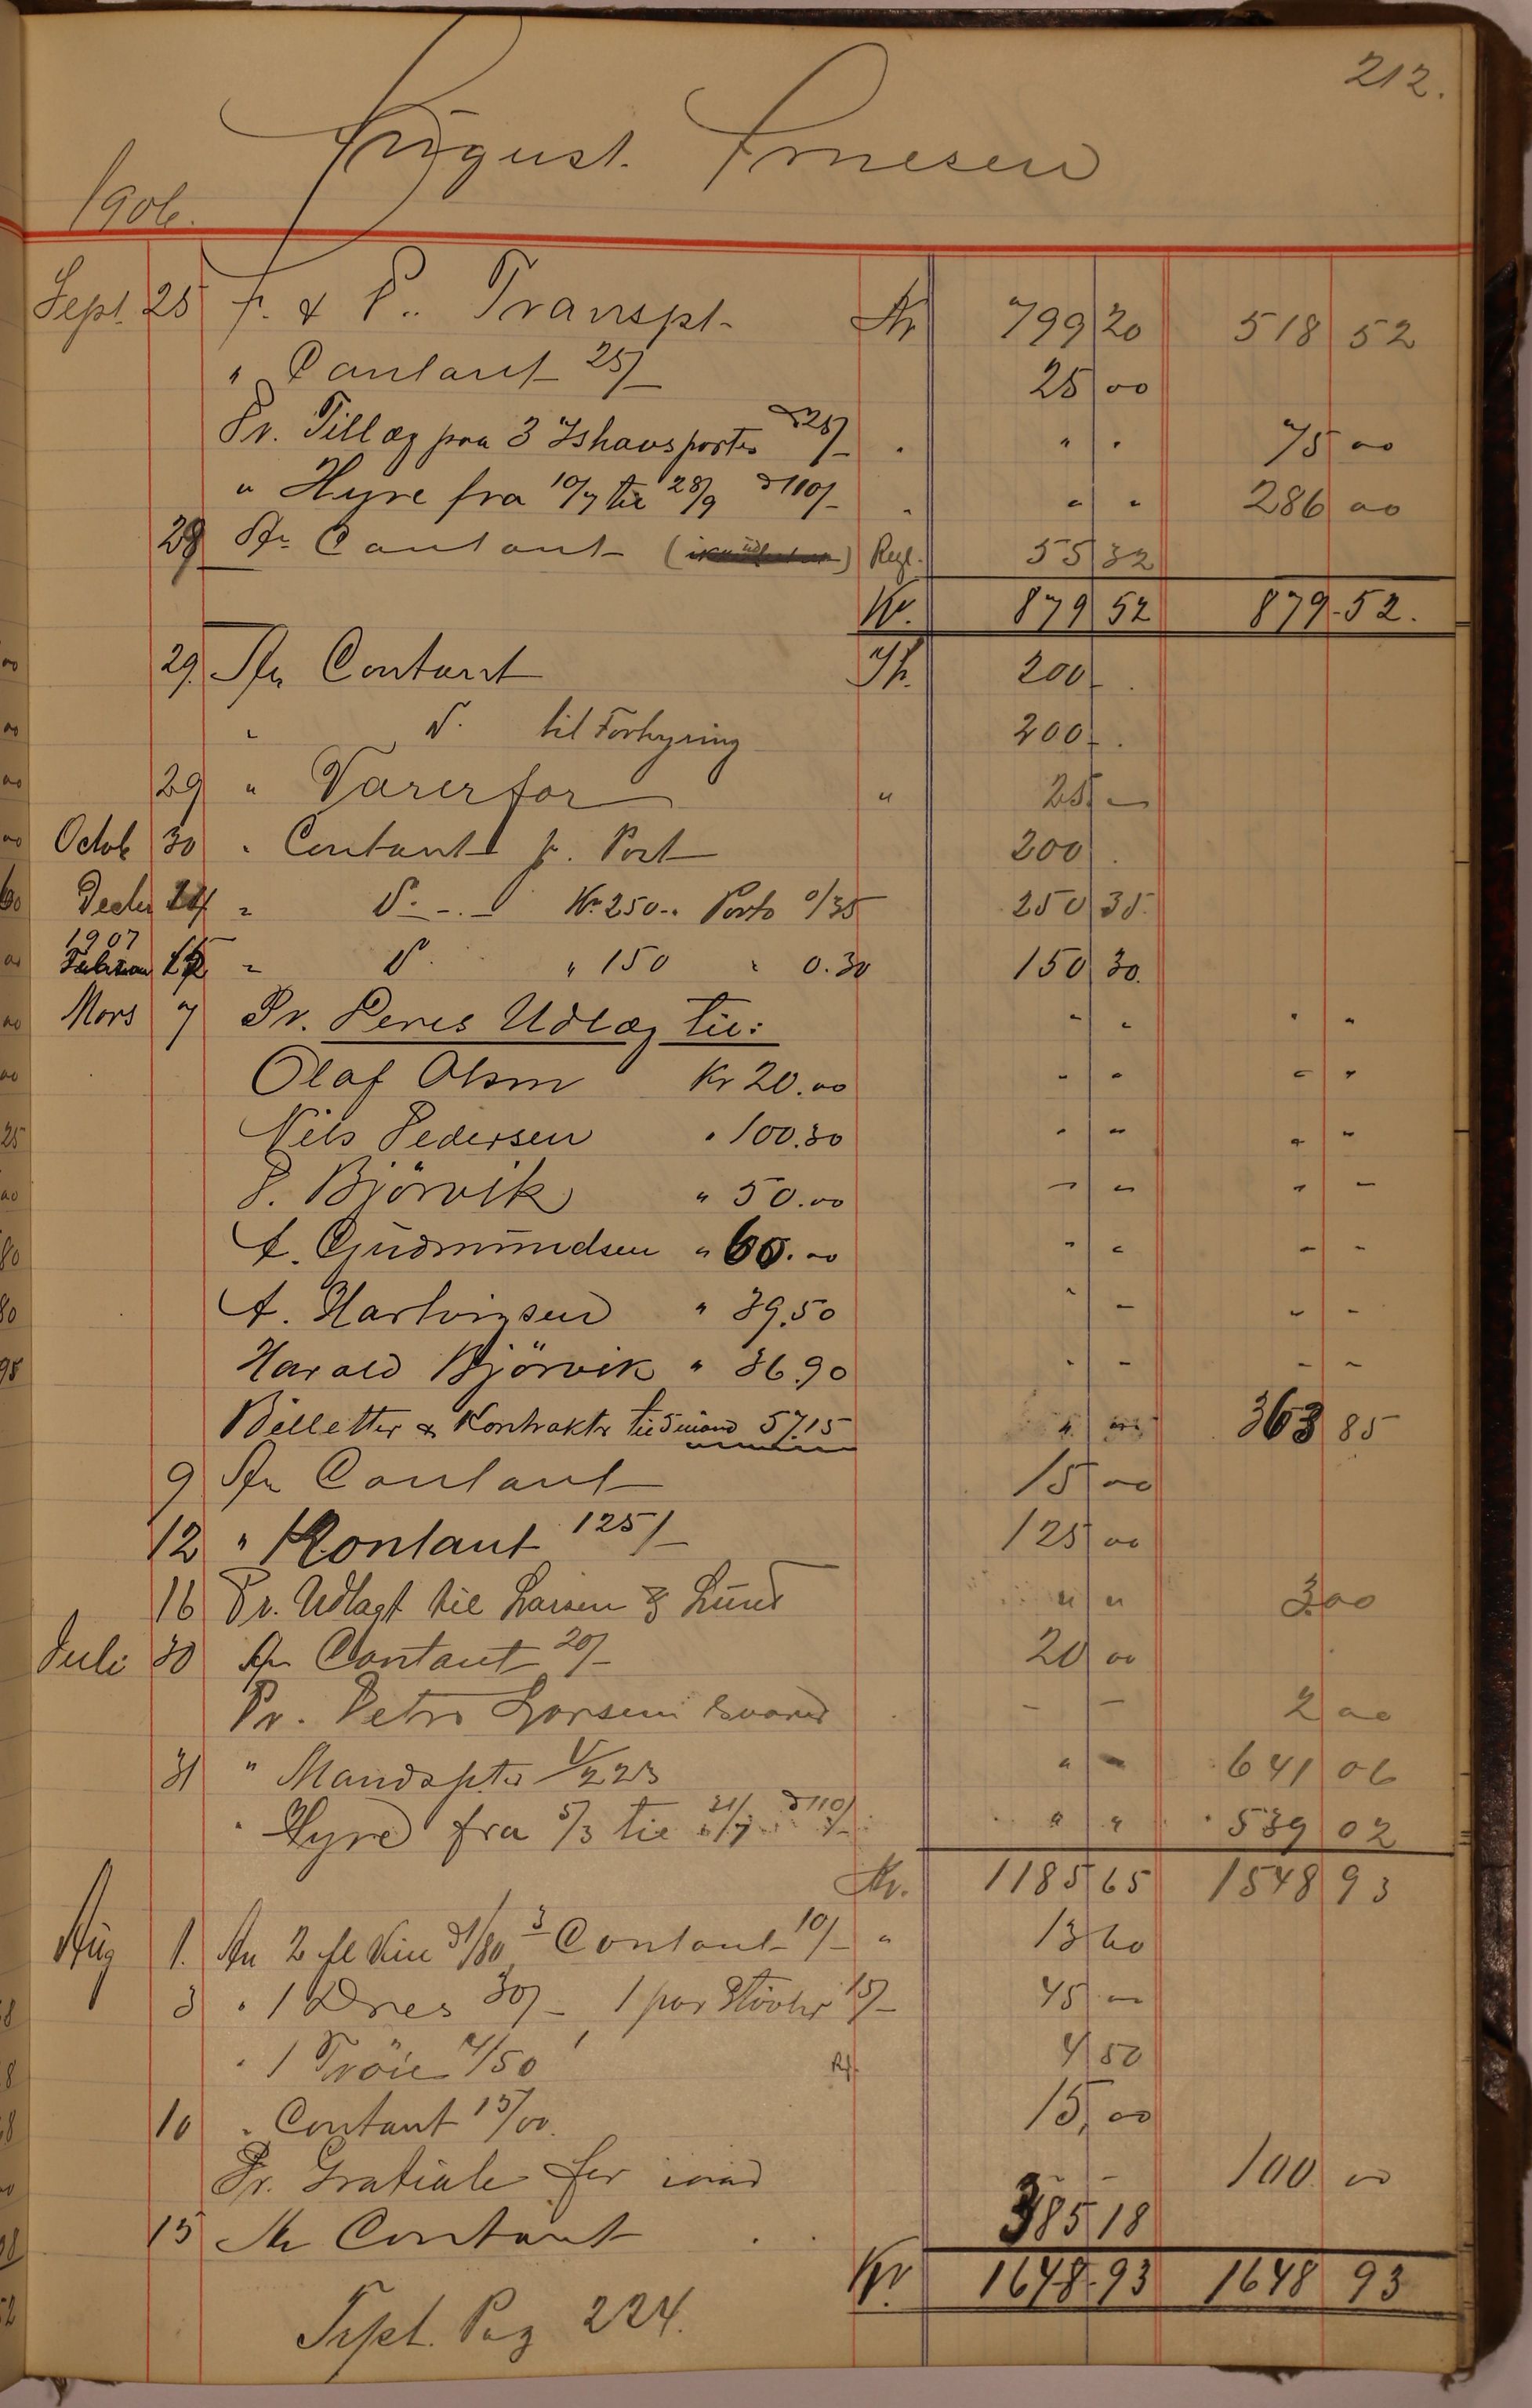 212.
August.
1906.
Sept. 25 F. & P. Transpt. Kr 799 20 518 52
" Contant 25/- 25 00
Pr. Tillæg paa 3 Ishavsparter à 25/- " " 75 00
" Hyre fra 10/7 til 28/9 à 110/- " " 286 00
29 An Contant ( ) Regl. 55 32
Kr. 879 52 879.52.
29. An Contant Kr. 200 -
" D. til Forhyring 200 -
29 " Varer for " 25 -
Octob 30 " Contant p. Post 200
Decbr 24 " D. - . - Kr. 250 -. Porto 0/35 250 35.
1907
Februar " D. " 150 " 0.30 150 30.
Mars 7 Pr. Deres Udlæg til: " " " "
Olaf Olsen Kr 20.00 " " " "
Nils Pedersen " 100.30 " " " "
P. Björvik " 50.00 " " " "
A. Gudmundsen " 60.00 " " " "
A. Hartvigsen " 39.50 " " " "
Harald Björvik " 36.90 " " " "
Billetter & Kontrakter til 5 mand 57.15 " " 363 85
9 An Contant 15 00
12 " Kontant 125/- 125 00
16 Pr. Udlagt til Larsen & Lund " " 3.00
Juli 30 An Contant 20/- 20 00
Pr. Petra Larsen - - 2 00
31 " Mandspter " - 641 06
" Hyre fra 5/3 til 31/7 à 110/- " " 539 02
Kr. 1185 65 1548 93
Aug 1. An 2 fl Vin à 1/80 Contant 10/- " 13 60
3 " 1 Dres 30/- 1 par Stövler 15/- 45 00
" 1 Tröie 4/50 4 50
10 " Contant 15/00. 15,00
Pr. Gratiale for - - 100 00
15 An Contant 385 18
Kr. 1648.93 1648 93
Trspt. Pag 224.